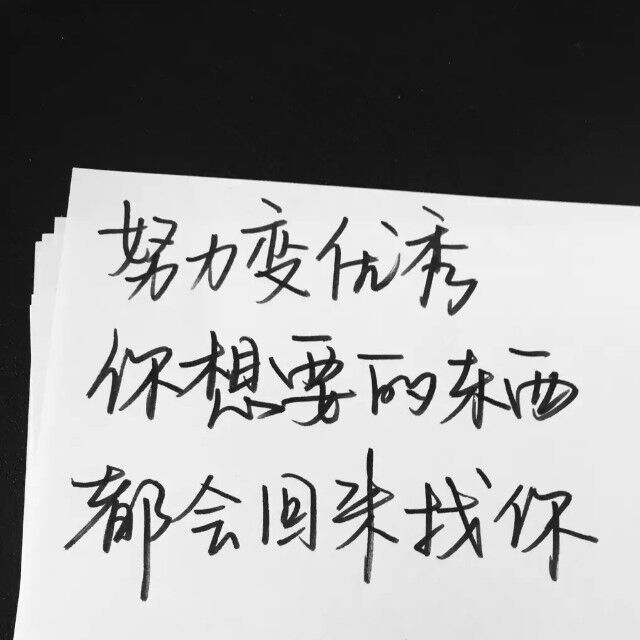 努力变优秀
你想要的东西
都会回来找你